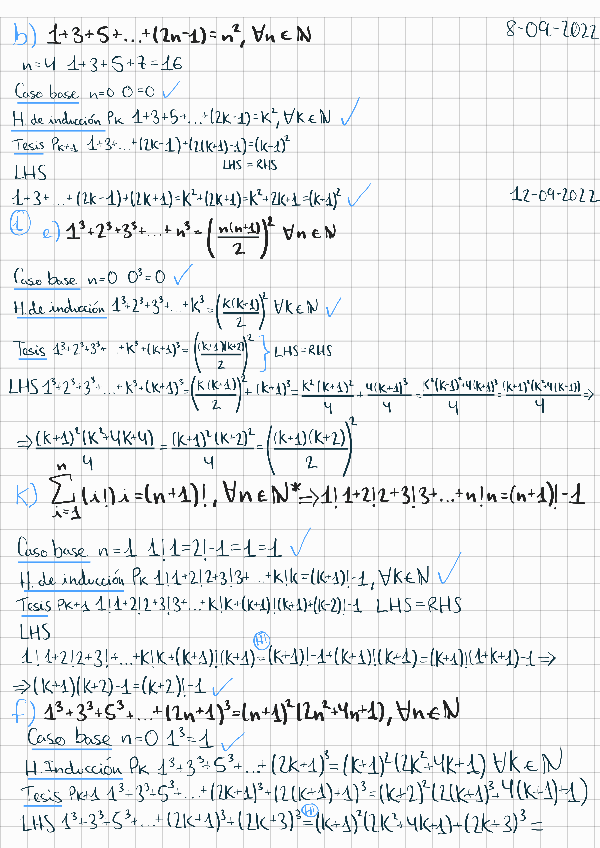 b) 1+3+5+...+(2n-1)=n², ∀n∈ℕ 8-09-2022
n=4 1+3+5+7=16
Caso base n=0 0=0 ✓
H. de inducción Pk 1+3+5+...+(2k-1)=k², ∀k∈ℕ ✓
Tesis Pk+1 1+3+...+(2k-1)+(2(k+1)-1)=(k+1)²
LHS = RHS
LHS
1+3+...+(2k-1)+(2k+1)=k²+(2k+1)=k²+2k+1=(k+1)² ✓ 12-09-2022
1 e) 1³+2³+3³+...+n³=(n(n+1)/2)² ∀n∈ℕ
Caso base n=0 0³=0 ✓
H. de inducción 1³+2³+3³+...+k³=(k(k+1)/2)² ∀k∈ℕ ✓
Tesis 1³+2³+3³+...+k³+(k+1)³=((k+1)(k+2)/2)² } LHS=RHS
LHS 1³+2³+3³+...+k³+(k+1)³=(k(k+1)/2)²+(k+1)³=k²(k+1)²/4+4(k+1)³/4=k²(k+1)²+4(k+1)³/4=(k+1)²(k²+4(k+1))/4⇒
⇒(k+1)²(k²+4k+4)/4=(k+1)²(k+2)²/4=((k+1)(k+2)/2)²
k) ∑ᵢ₌₁ⁿ(i!)i=(n+1)!, ∀n∈ℕ*⇒1!1+2!2+3!3+...+n!n=(n+1)!-1
Caso base n=1 1!1=2!-1=1=1 ✓
H. de inducción Pk 1!1+2!2+3!3+...+k!k=(k+1)!-1, ∀k∈ℕ ✓
Tesis Pk+1 1!1+2!2+3!3+...+k!k+(k+1)!(k+1)=(k+2)!-1 LHS=RHS
LHS
1!1+2!2+3!+...+k!k+(k+1)!(k+1)=(k+1)!-1+(k+1)!(k+1)=(k+1)!(1+k+1)-1⇒
⇒(k+1)(k+2)-1=(k+2)!-1 ✓
f) 1³+3³+5³+...+(2n+1)³=(n+1)²(2n²+4n+1), ∀n∈ℕ
Caso base n=0 1³=1 ✓
H. Inducción Pk 1³+3³+5³+...+(2k+1)³=(k+1)²(2k²+4k+1) ∀k∈ℕ
Tesis Pk+1 1³+3³+5³+...+(2k+1)³+(2(k+1)+1)³=(k+2)²(2(k+1)²+4(k+1)+1)
LHS 1³+3³+5³+...+(2k+1)³+(2k+3)³=(k+1)²(2k²+4k+1)+(2k+3)³=